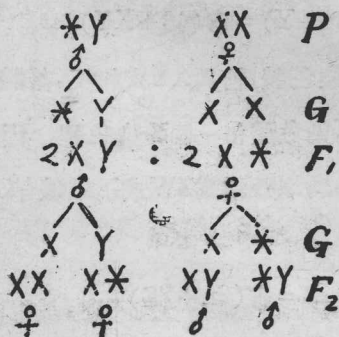 *Y XX P
♂ ♀
* Y X X G
2 X Y : 2 X * F₁
♂ ♀
X Y X * G
XX X* XY *Y F₂
♀ ♀ ♂ ♂